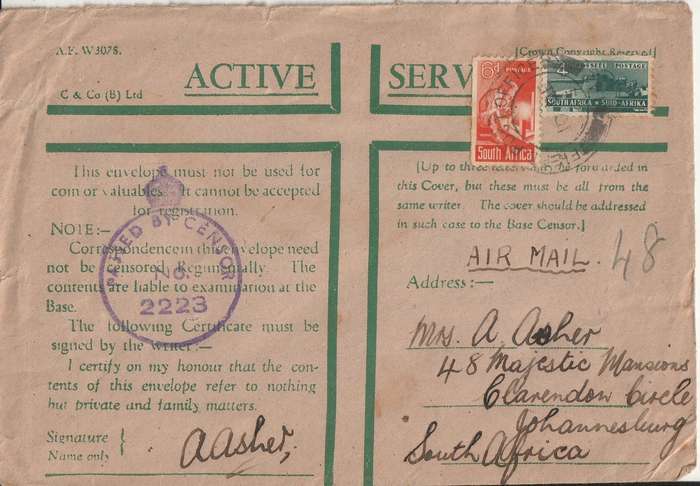 A.F. W3078.
[Crown Copyright Reserved]
C & Co (B) Ltd
ACTIVE SERV
6d POSTAGE
South Africa
POSTAGE
SOUTH AFRICA SUID-AFRIKA
This envelope must not be used for
coin or valuables. It cannot be accepted
for registration.
NOTE:—
Correspondence in this envelope need
not be censored Regimentally. The
contents are liable to examination at the
Base.
The following Certificate must be
signed by the writer:—
I certify on my honour that the con-
tents of this envelope refer to nothing
but private and family matters.
Signature
Name only
A Asher,
PASSED BY CENSOR
NO.
2223
[Up to three letters may be forwarded in
this Cover, but these must be all from the
same writer. The cover should be addressed
in such case to the Base Censor.]
AIR MAIL.
48
Address:—
Mrs. A. Asher
48 Majestic Mansions
Clarendon Circle
Johannesburg
South Africa